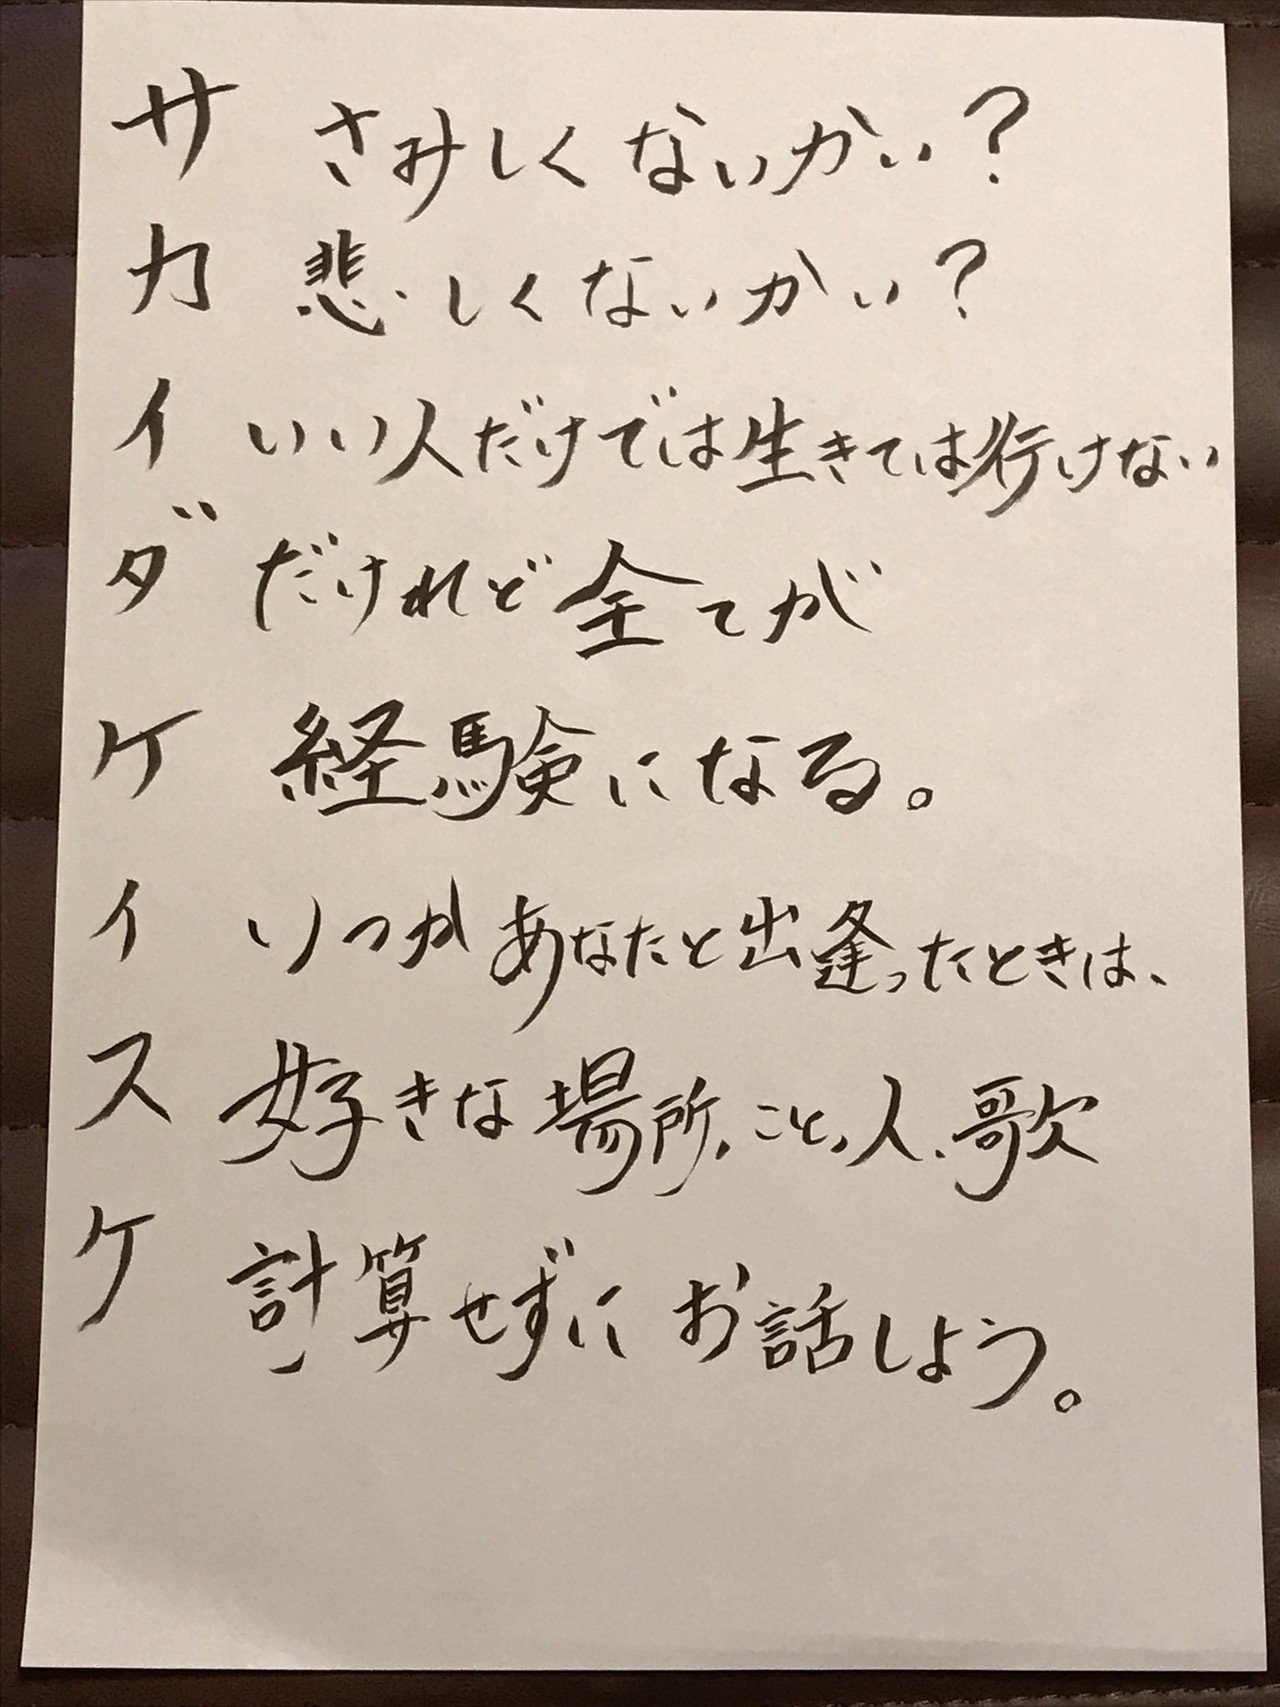 サ さみしくないかい?
カ 悲しくないかい?
イ いい人だけでは生きては行けない
ダ だけれど全てが
ケ 経験になる。
イ いつかあなたと出逢ったときは、
ス 好きな場所、こと、人、歌
ケ 計算せずにお話しよう。